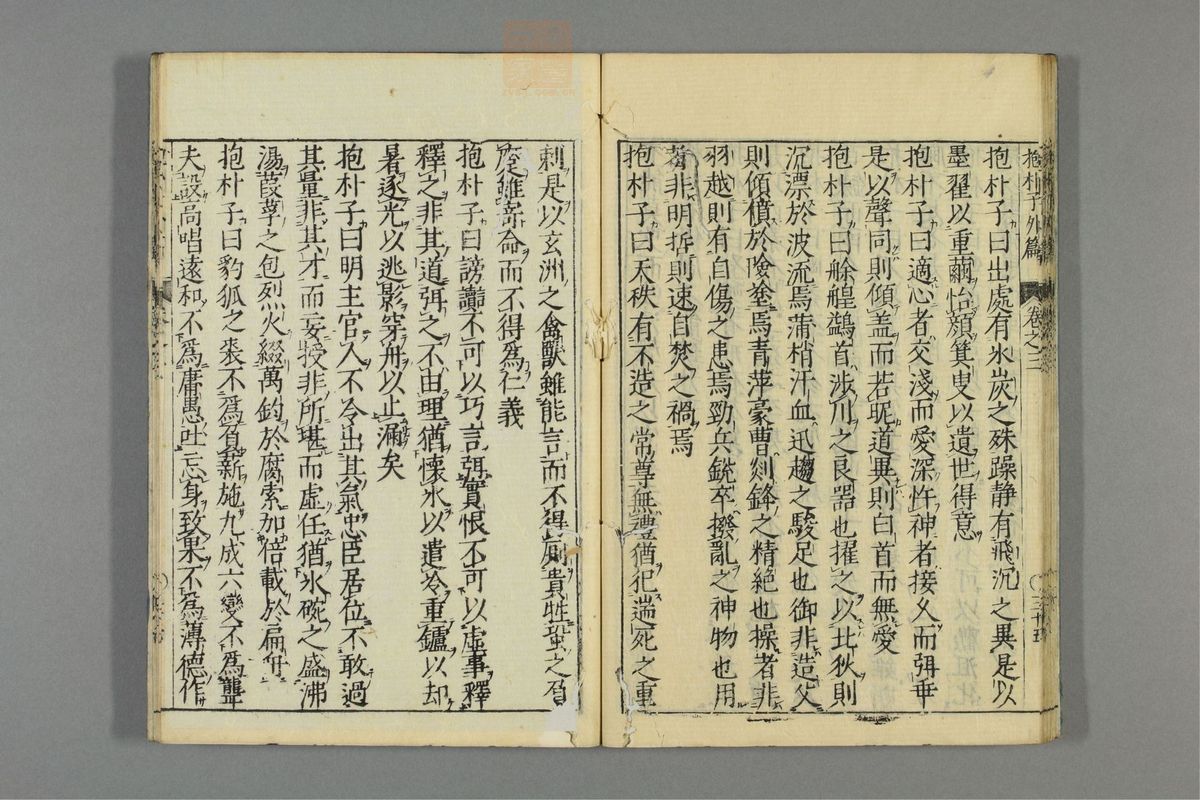 抱朴子外篇 卷之三 三十五
抱朴子曰出處有氷炭之殊躁静有飛沉之異是以
墨翟以重繭怡顏箕叟以遺世得意
抱朴子曰適心者交淺而愛深忤神者接久而弭乖
是以聲同則傾盖而若昵道異則白首而無愛
抱朴子曰艅艎鷁首涉川之良器也擢之以北狄則
沉漂於波流焉蒲梢汗血迅趨之駿足也御非造父
則傾僨於嶮塗焉青萍豪曹剡鋒之精絶也操者非
羽越則有自傷之患焉勁兵銳卒撥亂之神物也用
者非明哲則速自焚之禍焉
抱朴子曰天秩有不造之常尊無禮猶犯遄死之重
刺是以玄洲之禽獸雖能言而不得厠貴牲蛩之負
蹷雖寄命而不得爲仁義
抱朴子曰謗讟不可以巧言弭實恨不可以虛事釋
釋之非其道弭之不由理猶懷氷以遣冷重鑪以却
暑逐光以逃影穿舟以止漏矣
抱朴子曰明主官人不令出其氣忠臣居位不敢過
其量非其才而妄授非所堪而虛任猶氷碗之盛沸
湯葭莩之包烈火綴萬鈞於腐索加倍載於扁舟
抱朴子曰豹狐之裘不爲負薪施九成六變不爲聾
夫設高唱遠和不爲庸愚吐忘身致果不爲薄德作